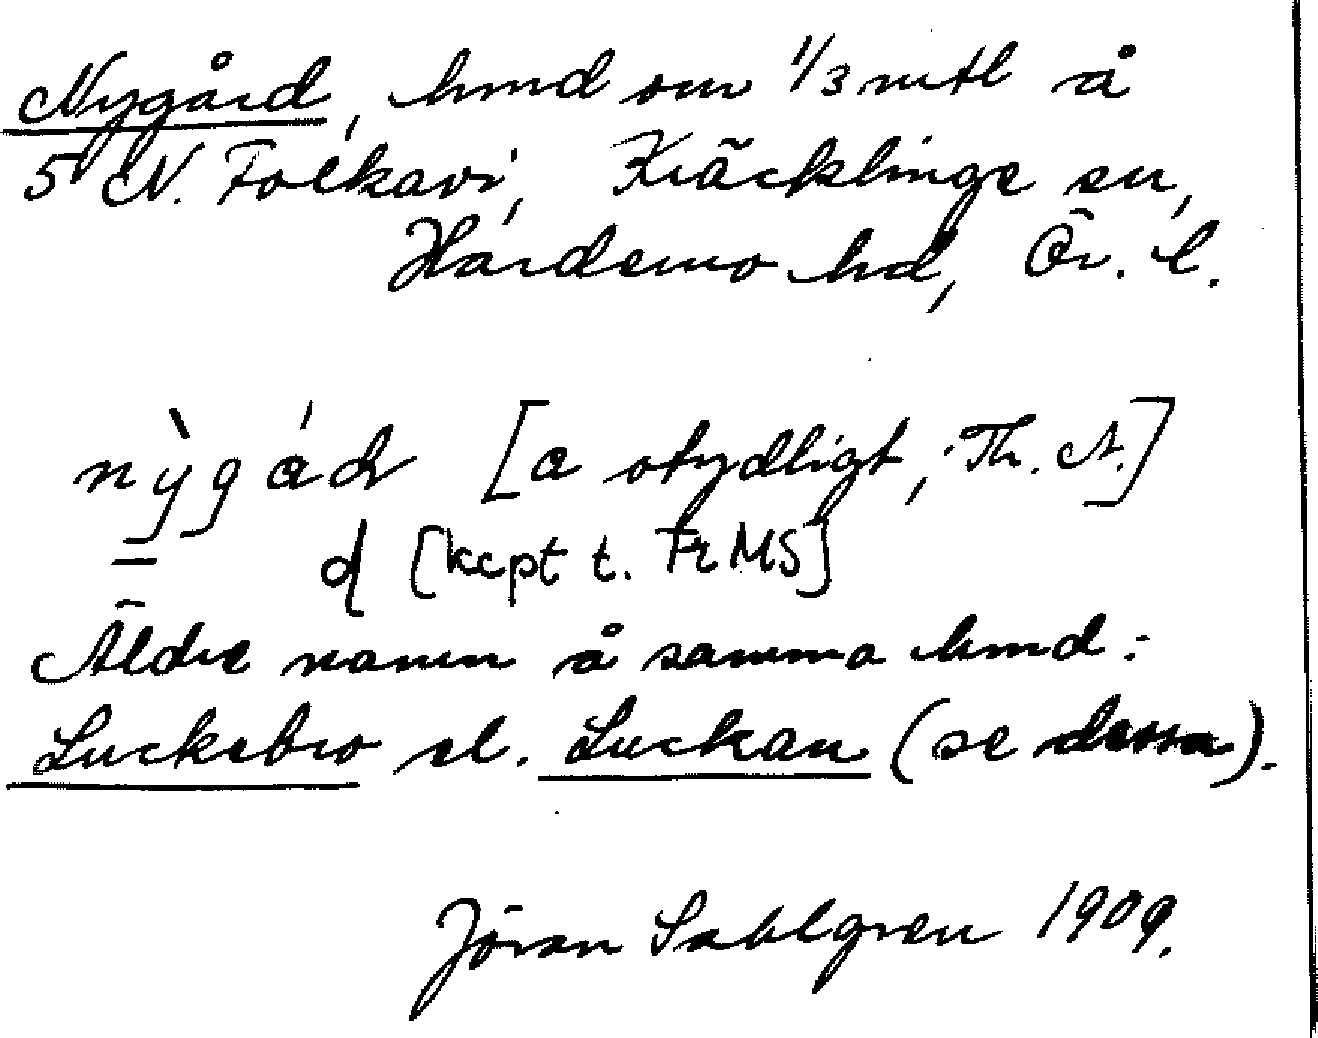 Nygård, hmd om 1/3 mtl å
5 N. Folkavi, Kräcklinge sn,
Hardemo hd, Ör. l.
nỳgád [a otydligt, Th. A.]
d [kcpt t. Fr MS]
Äldre namn å samma hmd:
Luckebro el. Luckan (se dessa).
Jöran Sahlgren 1909.